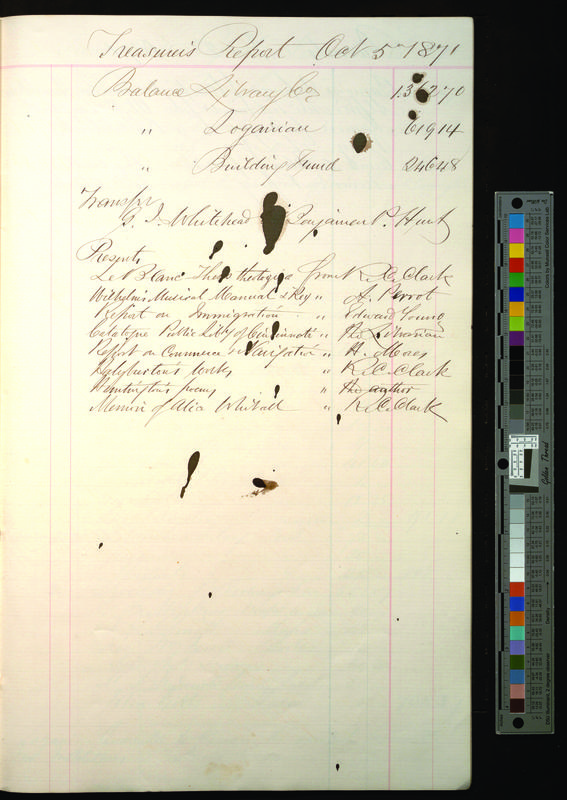 Treasurers Report Oct 5th 1871
Balance Library Co 1.36270
" Loganian 61914
" Building Fund 24648
Transfer
G. D. Whitehead Benjamin P. Hunt
Presents
Le Blanc Theologica from K. C. Clark
Wilhelms Musical Manual & Key " A. Perrot
Report on Immigration " Edward Young
Catalogue Public Liby of Cincinnati " The Librarian
Report on Commerce & Navigation " H. Moses
Works " K. C. Clark
Huntington's poems " The author
Memoir of Alice Whitall " K. C. Clark